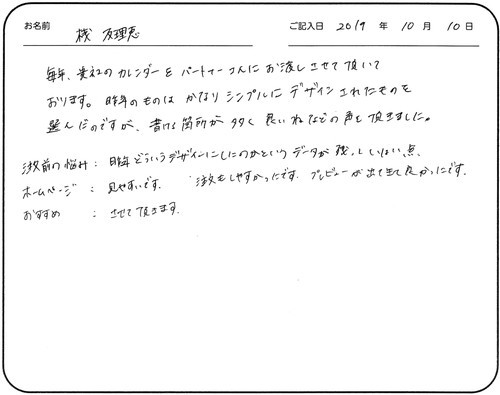 お名前 機 友理恵 ご記入日 2019 年 10 月 10 日
毎年、貴社のカレンダーをパートナーさんにお渡しさせて頂いて
おります。昨年のものはかなりシンプルにデザインされたものを
選んだのですが、書ける箇所が多く良いねなどの声を頂きました。
注文前の悩み : 昨年どういうデザインにしたのかというデータが残っていない点、
ホームページ : 見やすいです。 注文もしやすかったです。プレビューが出て来て良かったです。
おすすめ : させて頂きます。